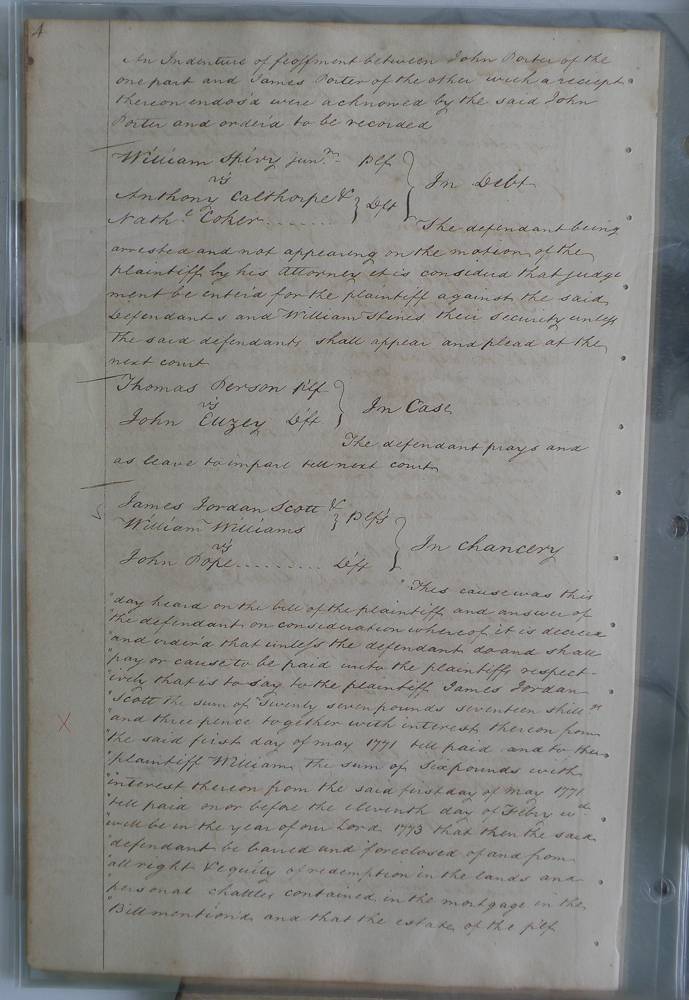 4
An Indenture of feoffment between John Porter of the
one part and James Porter of the other with a receipt
thereon endos'd were acknowed by the said John
Porter and order'd to be recorded
William Spivy junr Plf
vs
In Debt
Anthony Calthorpe &
Nathl Coker ....... Deft
The defendant being
arrested and not appearing on the motion of the
plaintiff by his Attorney it is considrd that judge
ment be enter'd for the plaintiff against the said
Defendants and William Hines their security unless
the said defendants shall appear and plead at the
next court
Thomas Person Plf
vs
In Case
John Euzey Deft
The defendant prays and
as leave to imparl till next court
James Jordan Scott &
William Williams Plfs
vs
In Chancery
John Pope ......... Deft
"This cause was this
"day heard on the bill of the plaintiff and answer of
"the defendant on consideration whereof it is decree
"and order'd that unless the defendant do and shall
"pay or cause to be paid unto the plaintiffs respect-
"ively that is to say to the plaintiff James Jordan
"Scott the sum of Twenty seven pounds seventeen shillgs
"and three pence together with interest thereon from
"the said first day of may 1771 till paid and to the
"plaintiff William the sum of Six pounds with
"interest thereon from the said first day of may 1771
"till paid on or before the eleventh day of Febry wch
"will be in the year of our Lord 1773 that then the said
"defendant be barred and foreclosed of and from
"all right & equity of redemption in the lands and
"personal chattles contained in the mortgage in the
"Bill mention'd and that the estate of the plf